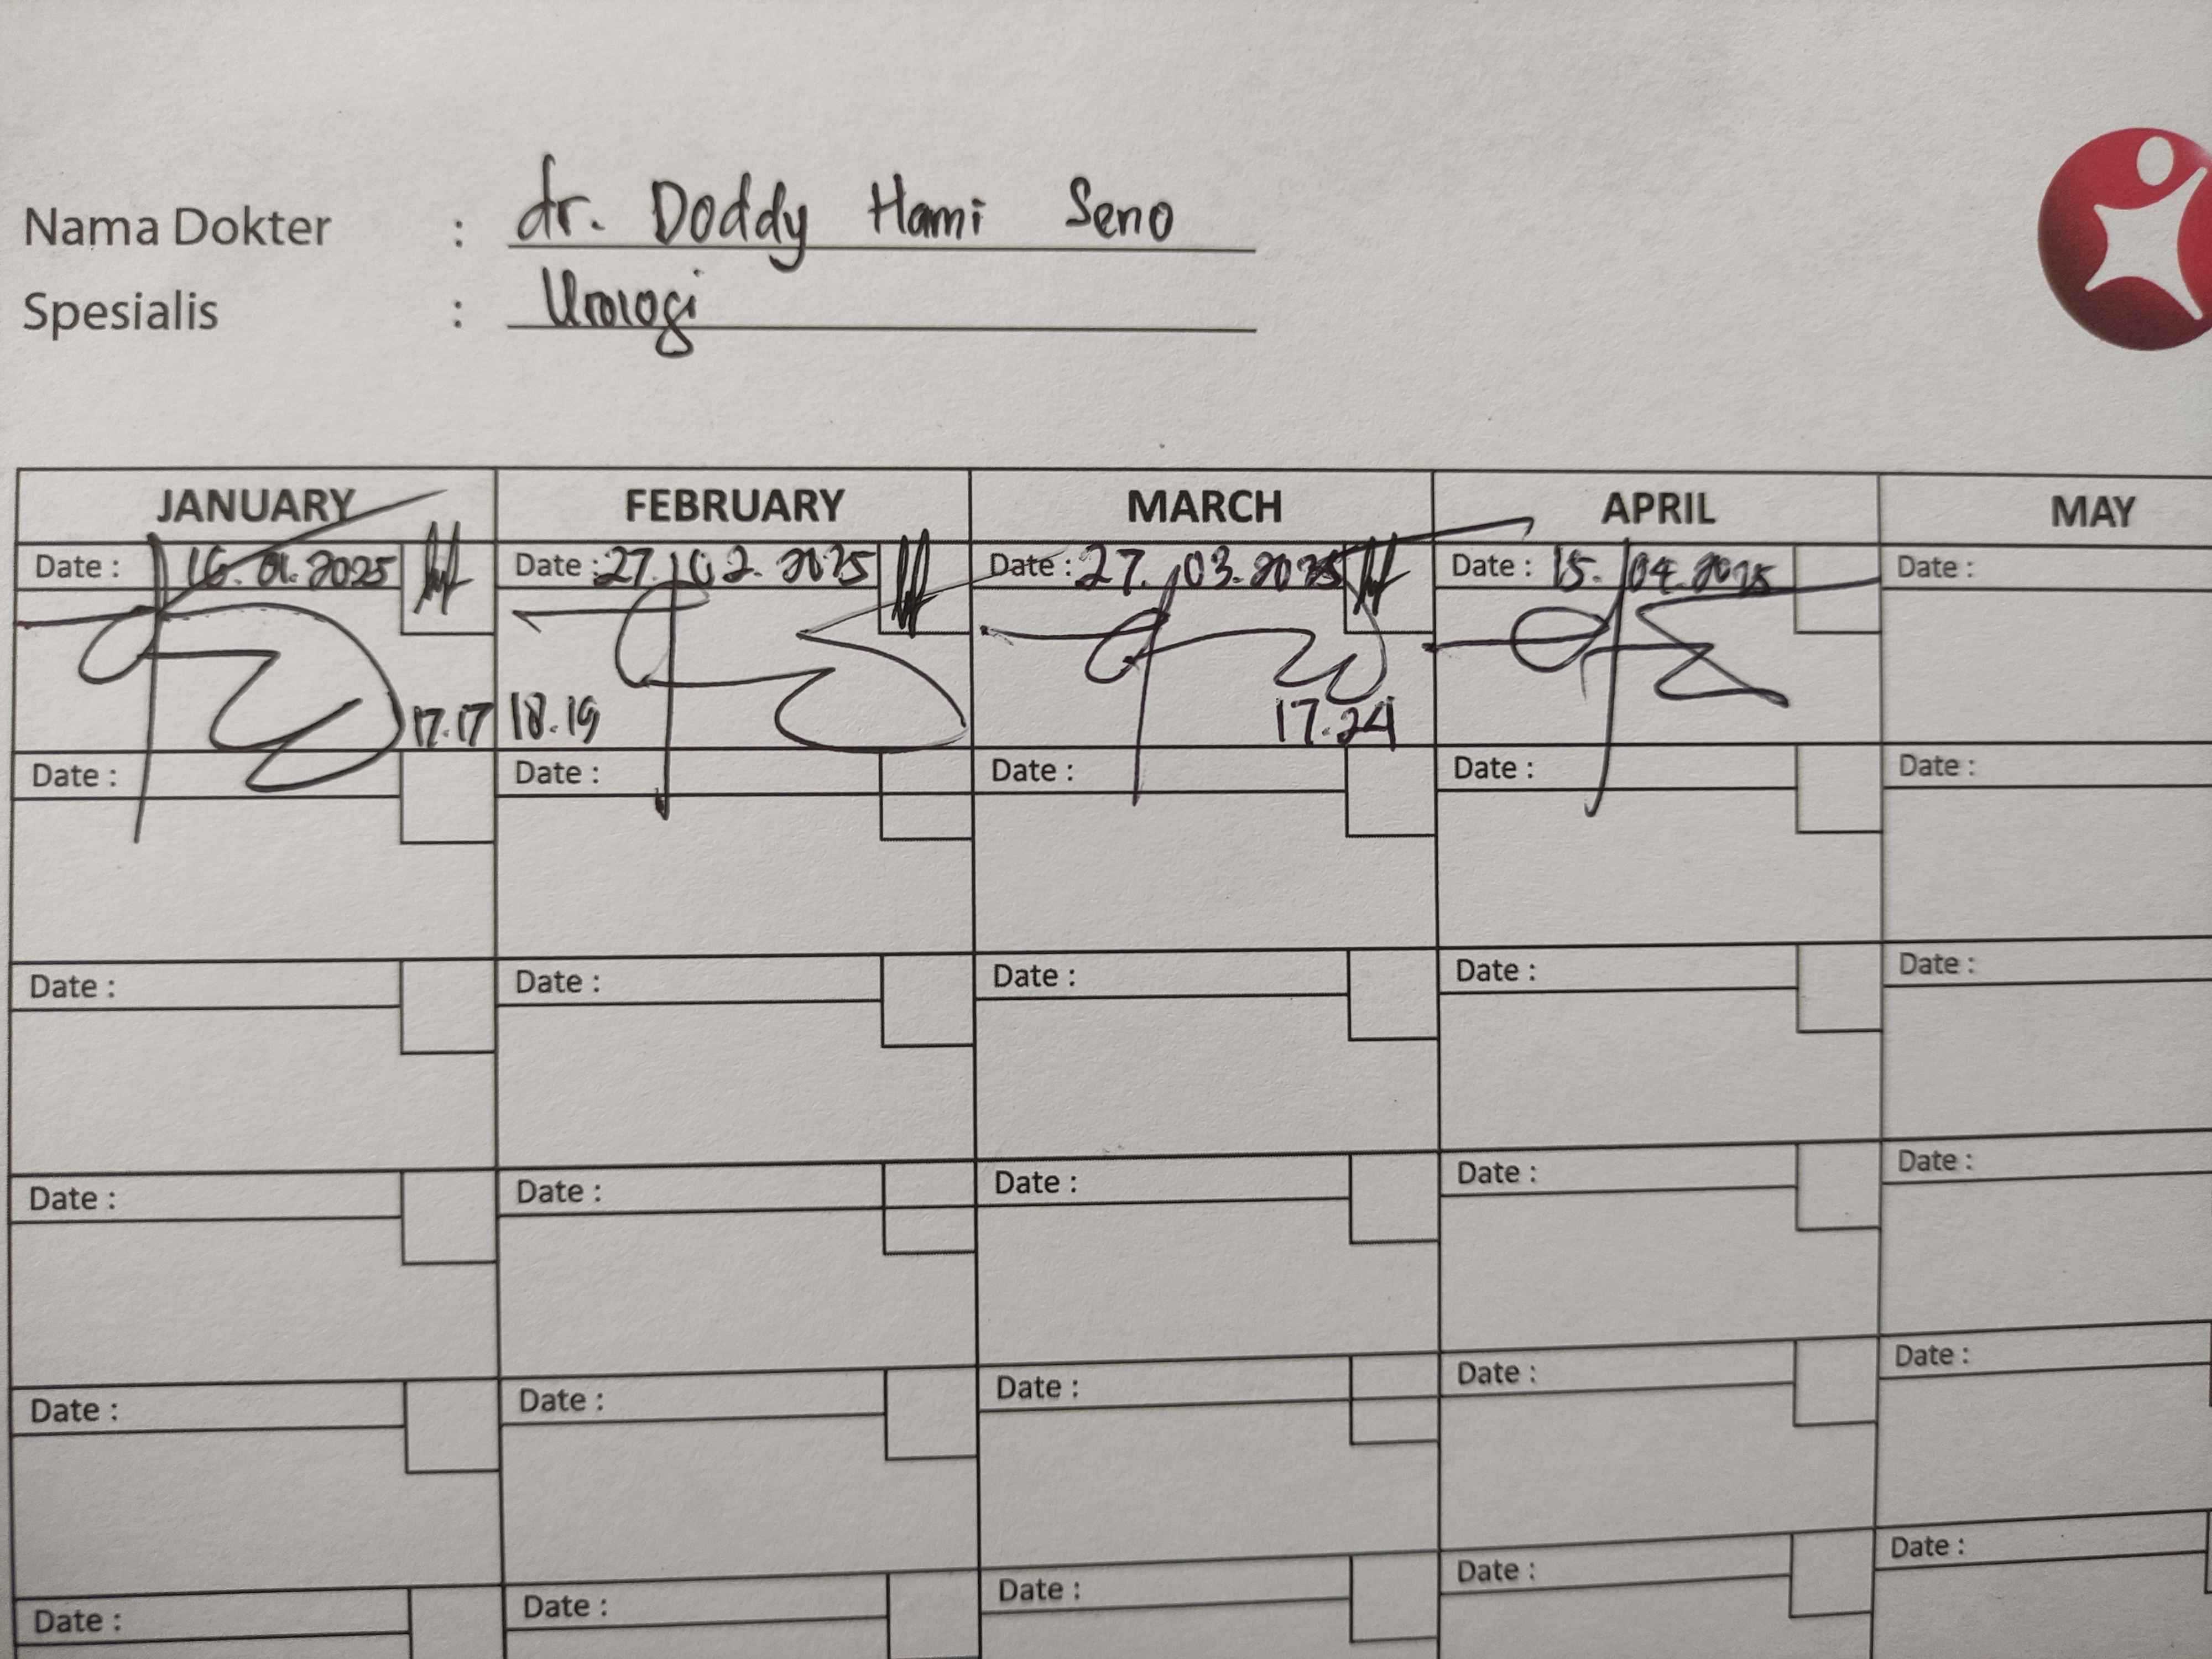 Nama Dokter : dr. Doddy Hami Seno
Spesialis : Urologi
JANUARY FEBRUARY MARCH APRIL MAY
Date : 16.01.2025 Date : 27.02.2025 Date : 27.03.2025 Date : 15.04.2025 Date :
17.17 18.19 17.24
Date : Date : Date : Date : Date :
Date : Date : Date : Date : Date :
Date : Date : Date : Date : Date :
Date : Date : Date : Date : Date :
Date : Date : Date : Date : Date :